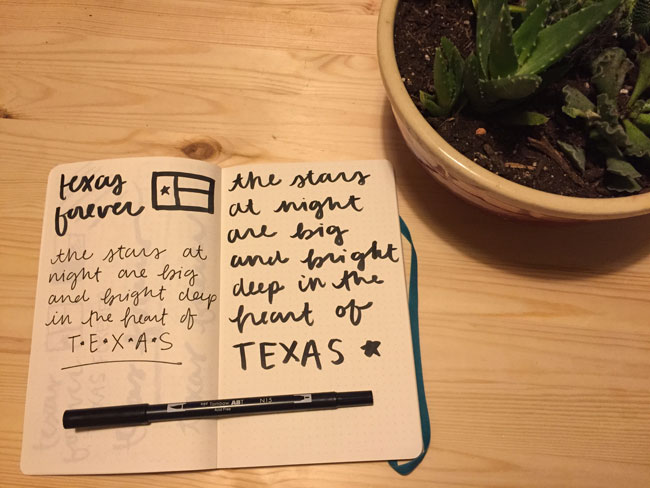 texas
forever
the stars at
night are big
and bright deep
in the heart of
T•E•X•A•S
the stars
at night
are big
and bright
deep in the
heart of
TEXAS
Tombow ABT N15
Acid Free